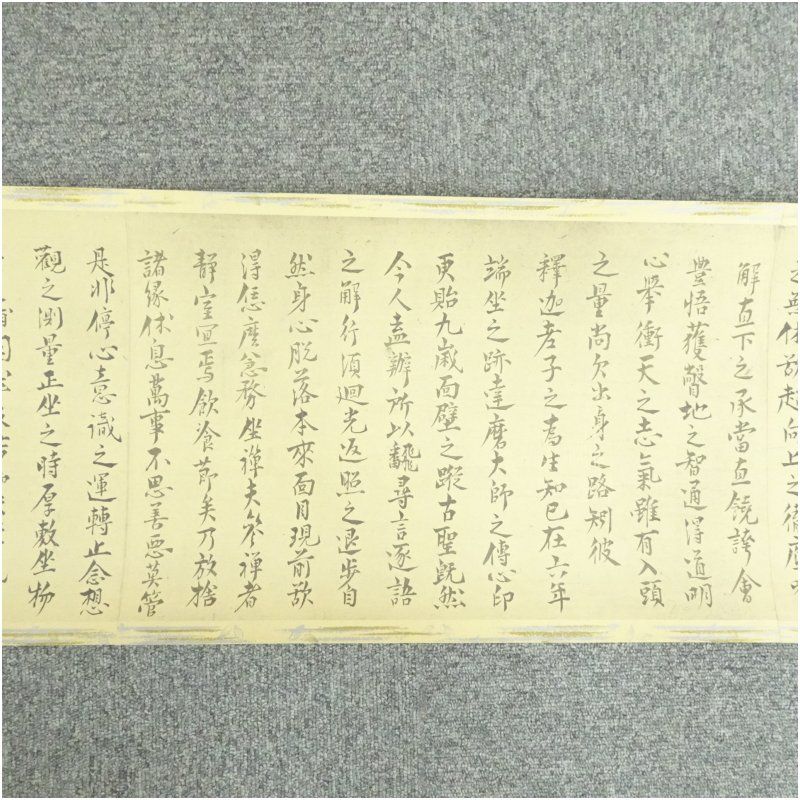 向上之徹底
解直下之承當直饒誇會
豊悟獲瞥地之智通得道明
心舉衝天之志氣雖有入頭
之量尚欠出身之路矧彼
釋迦老子之爲生知已在六年
端坐之跡達磨大師之傳心印
更貽九歳面壁之蹤古聖既然
今人盍辦所以飜尋言逐語
之解行須廻光返照之退歩自
然身心脱落本來面目現前欲
得恁麼急務坐禪夫參禪者
靜室冝焉飲飡節矣乃放捨
諸縁休息萬事不思善惡莫管
是非停心意識之運轉止念想
觀之測量正坐之時厚敷坐物